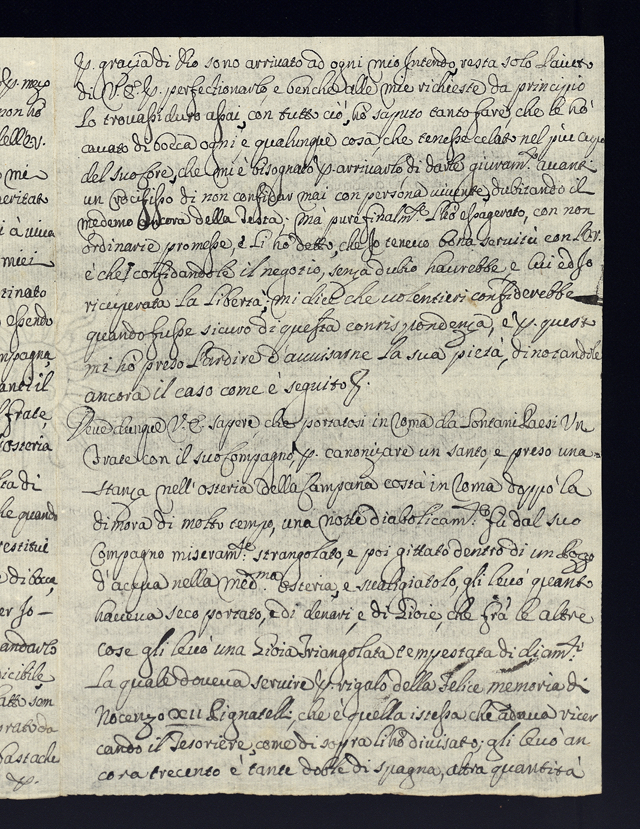 gracia di Dio sono arrivato ad ogni mio Intendo, resta solo l'aiuto
di V. E. p. perfectionarlo, e benche alle mie richieste da principio
Lo trovassi duro assai, con tutto ciò, hò saputo tanto fare, che le hò
cavato di bocca ogni e qualunque cosa che tenesse celato nel più cupo
del suo core, che mi è bisognato p. arrivarlo di darle giuram.to avanti
un Crocifisso di non confidar mai con persona vivente, dubitando il
medemo ancora della testa. ma pure finalm.te con non
ordinarie promesse, e Li hò detto, che Io tenevo bona servitù con
e che confidandole il negotio, senza dubio haurebbe e lui ed Io
ricuperata La Libertà, mi dice che volentieri confiderebbe
quando fusse sicuro di questa conrispondenza, e p. questo
mi hò preso L'ardire d'avvisarne La sua pietà, dinotandole
ancora il caso come è seguito
Deve dunque V. E. sapere, che portatosi in Roma da Lontani Paesi Un
Frate con il suo Compagno p. canonizare un santo, e preso una
stanza nell'osteria della Campana costà in Roma doppò la
dimora di molto tempo, una notte diabolicam.te fu dal suo
Compagno miseram.te strangolato, e poi gittato dentro di un Pozzo
d'acqua nella med.ma osteria, e svaligiatolo, gli levò quanto
haveva seco portato, e di denari, e di Gioie, che frà le altre
cose gli levò una Gioia Triangolata tempestata di diam.ti
La quale doveva servire p. rigalo della Felice memoria di
Nocenzo XII Pignatelli, che è quella istessa che andava ricer
cando il Tesoriere, come di sopra li hò divisato; gli levò an
cora trecento e tante doble di spagna, altra quantità